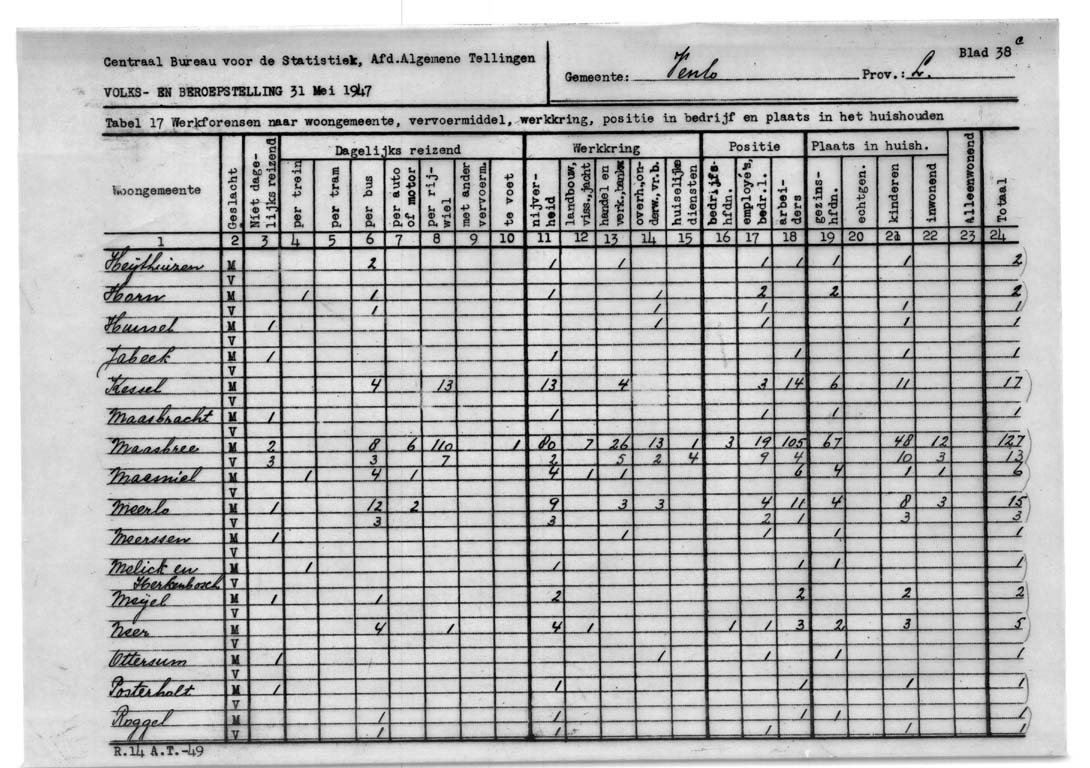 Centraal Bureau voor de Statistiek, Afd.Algemene Tellingen
VOLKS- EN BEROEPSTELLING 31 Mei 1947
Gemeente: Venlo Prov.: L. Blad 38 c
Tabel 17 Werkforensen naar woongemeente, vervoermiddel, werkkring, positie in bedrijf en plaats in het huishouden
Woongemeente | Geslacht | Niet dage-lijks reizend | Dagelijks reizend: per trein | per tram | per bus | per auto of motor | per rij-wiel | met ander vervoerm. | te voet | Werkkring: nijver-heid | landbouw, viss., jacht | handel en verk., bankw | overh., on-derw., vr.b. | huiselijke diensten | Positie: bedrijfs-hfdn. | employé's, bedr.l. | arbei-ders | Plaats in huish.: gezins-hfdn. | echtgen. | kinderen | inwonend | Alleenwonend | Totaal
1 2 3 4 5 6 7 8 9 10 11 12 13 14 15 16 17 18 19 20 21 22 23 24
Heijthuizen M 2 1 1 1 1 1 1 2
V
Horn M 1 1 1 1 2 2 2
V 1 1 1 1 1
Hunsel M 1 1 1 1 1
V
Jabeek M 1 1 1 1 1
V
Kessel M 4 13 13 4 3 14 6 11 17
V
Maasbracht M 1 1 1 1 1
V
Maasbree M 2 8 6 110 1 80 7 26 13 1 3 19 105 67 48 12 127
V 3 3 7 2 5 2 4 9 4 10 3 13
Maasniel M 1 4 1 4 1 1 6 4 1 1 6
V
Meerlo M 1 12 2 9 3 3 4 11 4 8 3 15
V 3 3 2 1 3 3
Meerssen M 1 1 1 1 1
V
Melick en M 1 1 1 1 1
Herkenbosch V
Meijel M 1 1 2 2 2 2
V
Neer M 4 1 4 1 1 1 3 2 3 5
V
Ottersum M 1 1 1 1 1
V
Posterholt M 1 1 1 1 1
V
Roggel M 1 1 1 1 1
V 1 1 1 1 1
R.14 A.T.-49